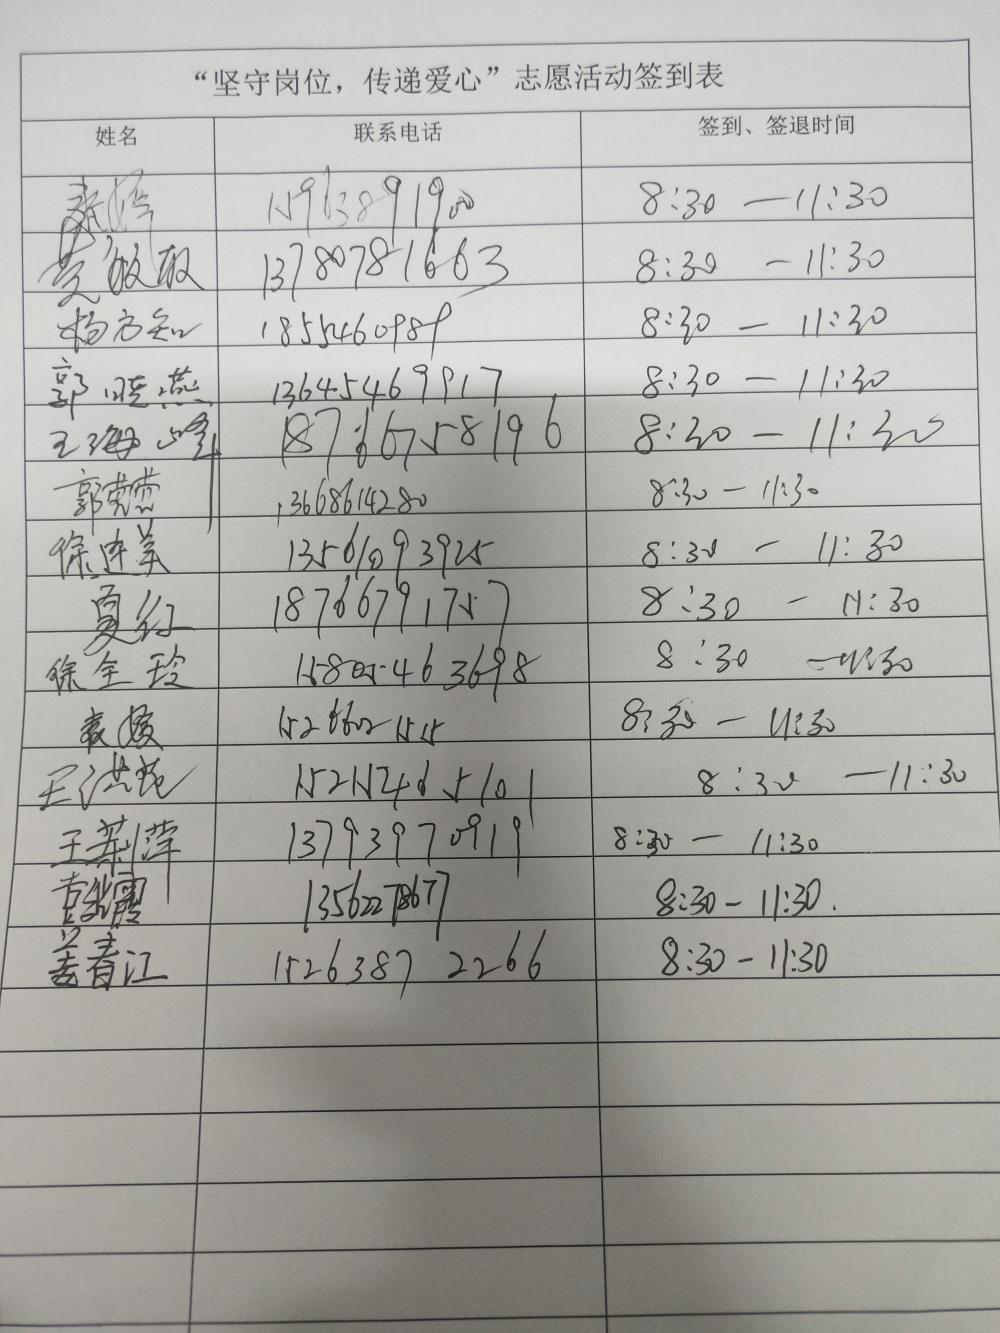 “坚守岗位，传递爱心”志愿活动签到表
姓名 联系电话 签到、签退时间
15963891900 8:30 — 11:30
13780781663 8:30 — 11:30
杨方知 1855460989 8:30 — 11:30
郭晓燕 13645469917 8:30 — 11:30
王海峰 18766758196 8:30 — 11:30
郭莹莹 13668614280 8:30 — 11:30
徐连美 13561093925 8:30 — 11:30
夏红 18766791757 8:30 — 11:30
徐全玲 15805463698 8:30 — 11:30
袁媛 8:30 — 11:30
15217465101 8:30 — 11:30
王菊萍 13793970919 8:30 — 11:30
13562278677 8:30 - 11:30.
姜春江 15263872266 8:30 - 11:30